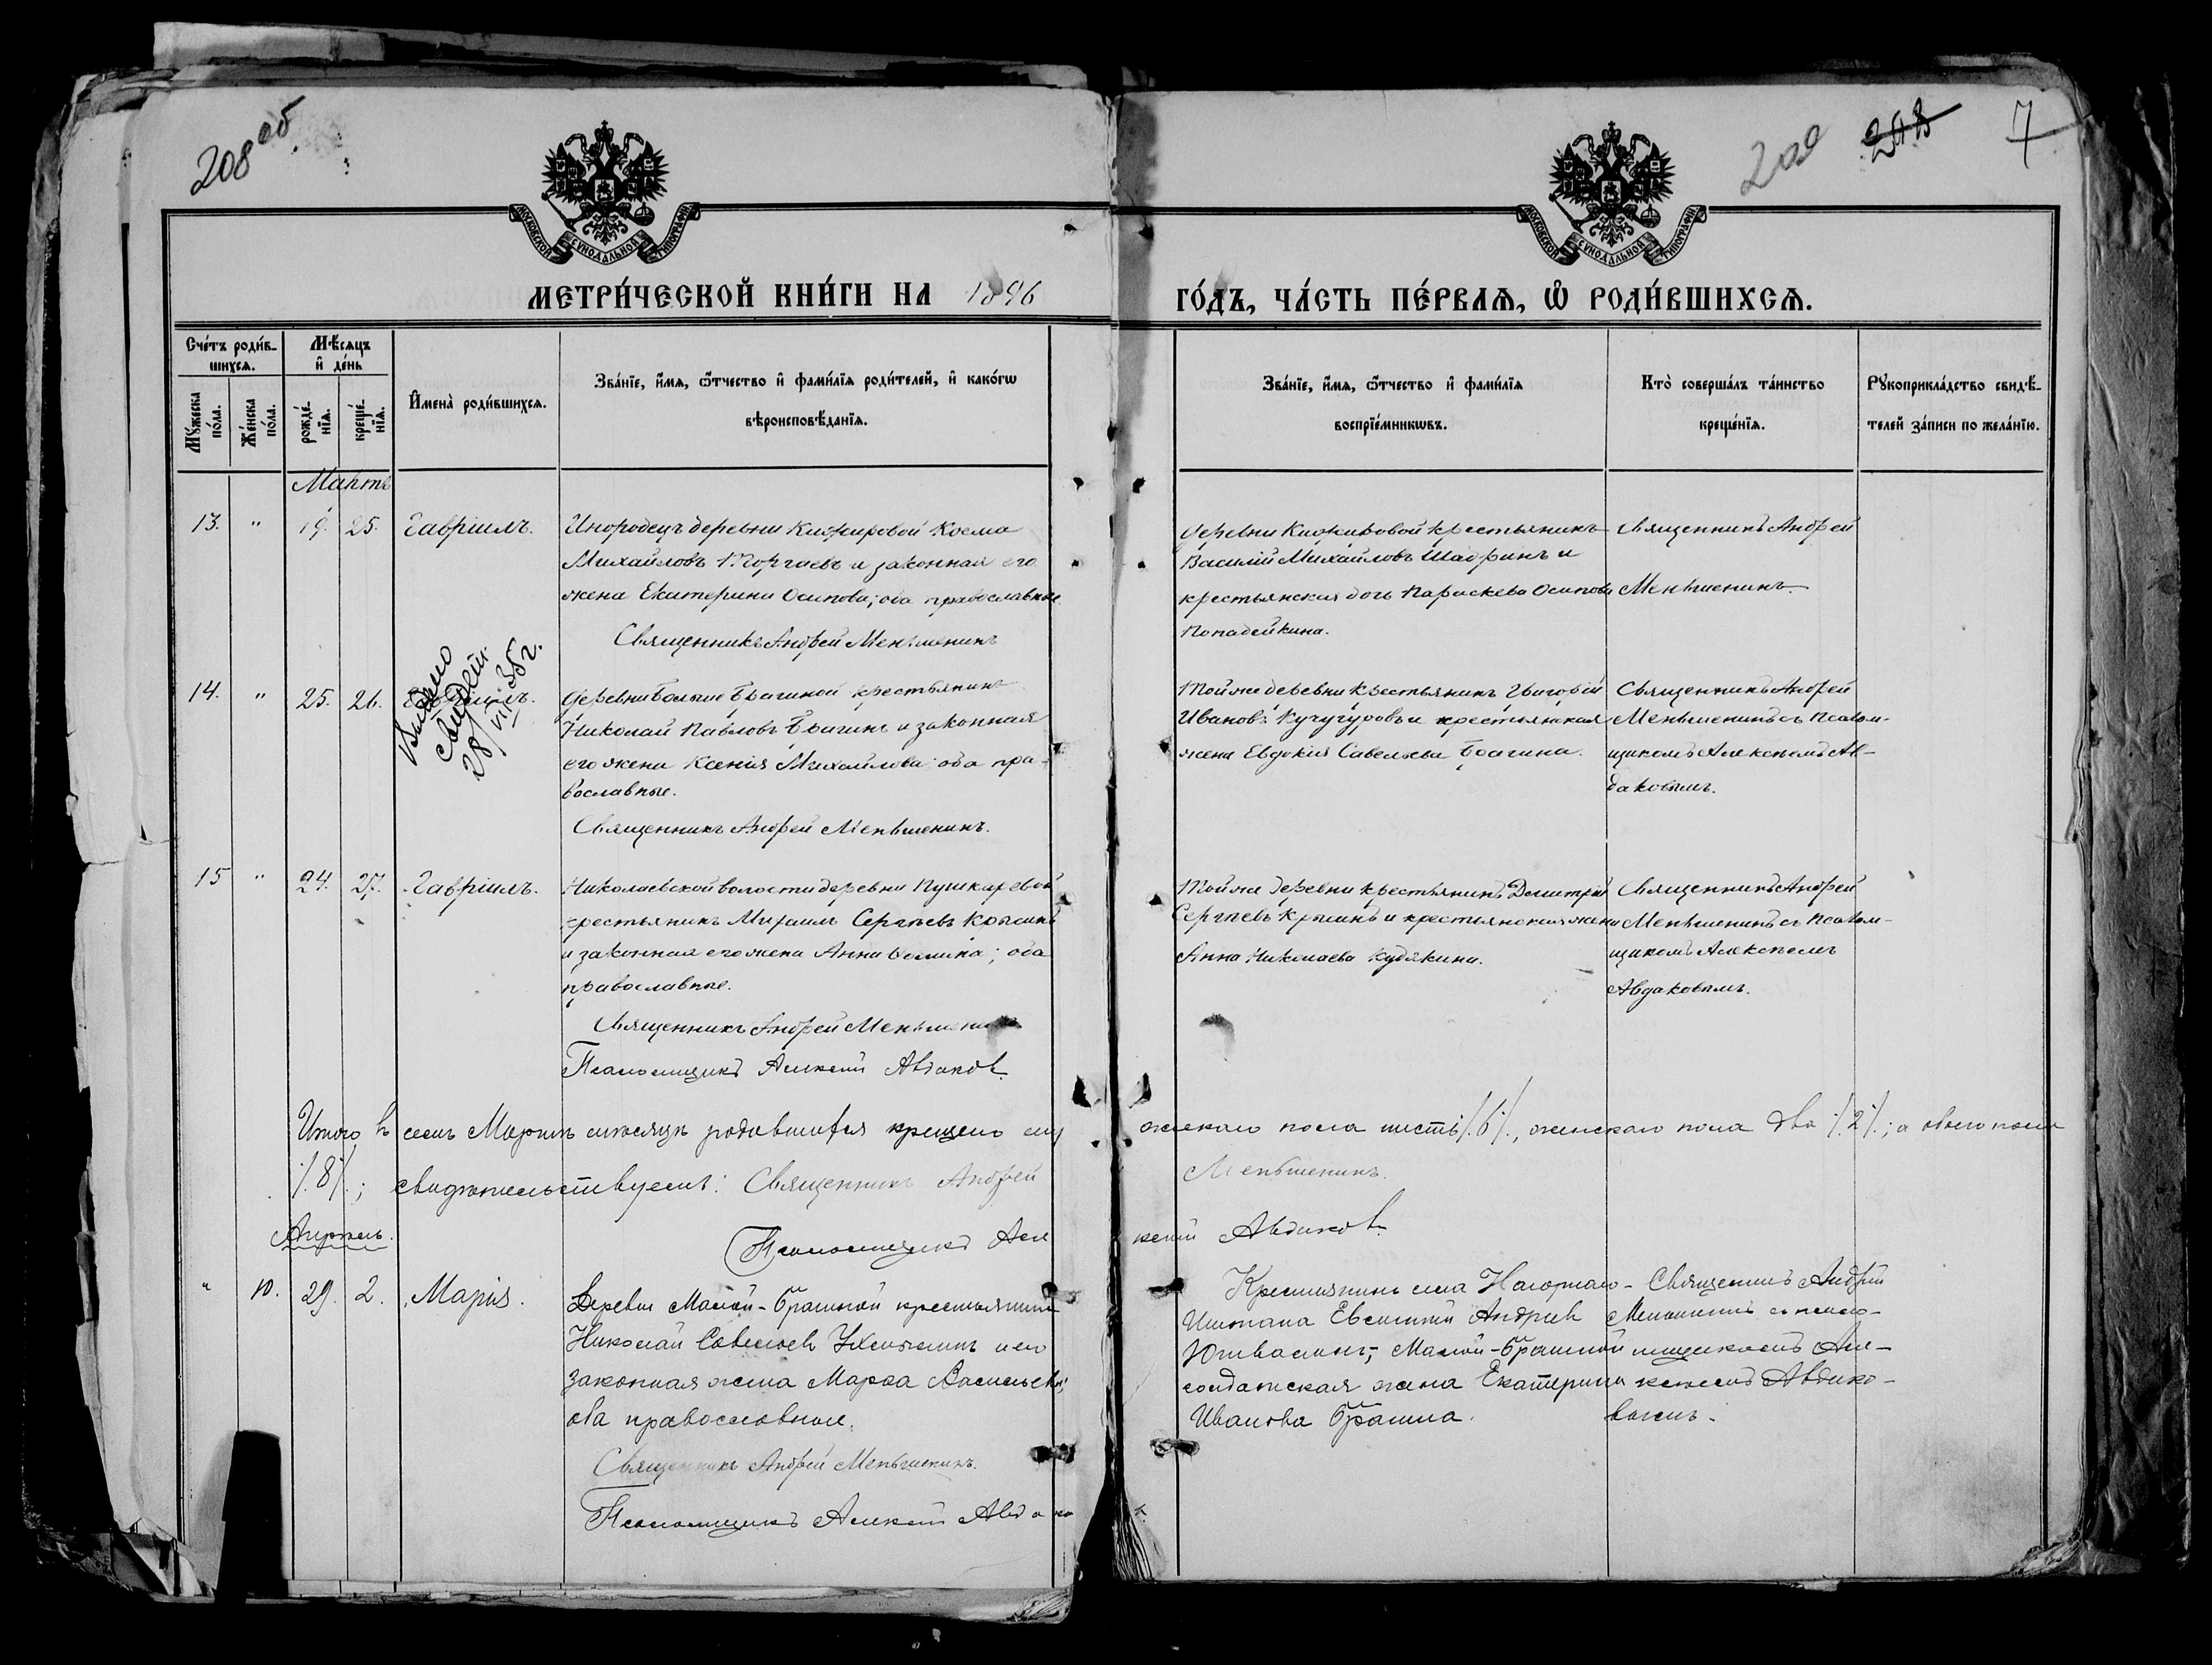 208 об.
209 208 7
МОСКОВСКОЙ СѴНОДАЛЬНОЙ ТИПОГРАФІИ
МОСКОВСКОЙ СѴНОДАЛЬНОЙ ТИПОГРАФІИ
МЕТРИ́ЧЕСКОЙ КНИ́ГИ НА 1896
ГО́ДЪ, ЧА́СТЬ ПЕ́РВАѦ, Ѽ РОДИ́ВШИХСѦ.
Сче́тъ роди́в-
шихсѧ.
Мѣ́сѧцъ
и҆ де́нь
Мꙋ́жеска по́ла.
Же́нска по́ла.
рожде́-
нїѧ.
креще́-
нїѧ.
И҆мена̀ роди́вшихсѧ.
Зва́нїе, и҆́мѧ, ѻ҆́тчество и҆ фами́лїѧ роди́телей, и҆ како́гѡ
вѣроисповѣ́данїѧ.
Зва́нїе, и҆́мѧ, ѻ҆́тчество и҆ фами́лїѧ
воспрїе́мникѡвъ.
Кто̀ соверша́лъ та́инство
креще́нїѧ.
Рꙋкоприкла́дство свидѣ́-
телей за́писи по жела́нїю.
Мартъ
13. " 19. 25. Гавріилъ.
Инородецъ деревни Кижировой Косма
Михайловъ и законная его
жена Екатерина Осипова; оба православные
Священникъ Андрей Меньшенинъ
деревни Кижировой крестьянинъ
Василій Михайловъ Шадринъ и
крестьянская дочь Параскева Осипова
Попадейкина.
Священникъ Андрей
Меньшенинъ.
14. " 25. 26.
Выдано
свидет.
28/VII 35 г.
деревни Больше Брагиной крестьянинъ
Николай Павловъ Брагинъ и законная
его жена Ксенія Михайлова оба пра-
вославные.
Священникъ Андрей Меньшенинъ.
Той же деревни крестьянинъ Григорій
Ивановъ Кучугуровъ и крестьянская
жена Евдокія Савельева Брагина.
Священникъ Андрей
Меньшенинъ съ Псалом-
щикомъ Алексѣемъ Ав-
даковымъ.
15 " 24. 27. Гавріилъ.
Николаевской волости деревни Пушкаревой
крестьянинъ Михаилъ Сергѣевъ Крысинъ
и законная его жена Анна Ѳомина; оба
православные.
Священникъ Андрей Меньшенинъ
Псаломщикъ Алексѣй Авдаков.
Той же деревни крестьянинъ Димитрій
Сергѣевъ Крысинъ и крестьянская жена
Анна Николаева Кудякина.
Священникъ Андрей
Меньшенинъ съ Псалом-
щикомъ Алексѣемъ
Авдаковымъ.
Итого въ семъ Мартѣ мѣсяцѣ родившихся крещено мужескаго пола шесть ./.6./., женскаго пола два ./.2./.; а обоего пола
./.8./.; свидѣтельствуемъ: Священникъ Андрей Меньшенинъ.
Псаломщикъ Алексѣй Авдаков.
Апрѣль.
" 10. 29. 2. Марія.
Деревни Малой-Брагиной крестьянинъ
Николай Савельевъ и его
законная жена Марѳа Васильева;
оба православные.
Священникъ Андрей Меньшенинъ.
Псаломщикъ Алексѣй Авдаков.
Крестьянинъ села Нагорнаго-
Иштана Евгеній Андреевъ
Малой-Брагиной
солдатская жена Екатерина
Иванова Брагина.
Священникъ Андрей
Меньшенинъ съ псало-
мщикомъ Але-
ксѣемъ Авдако-
вымъ.